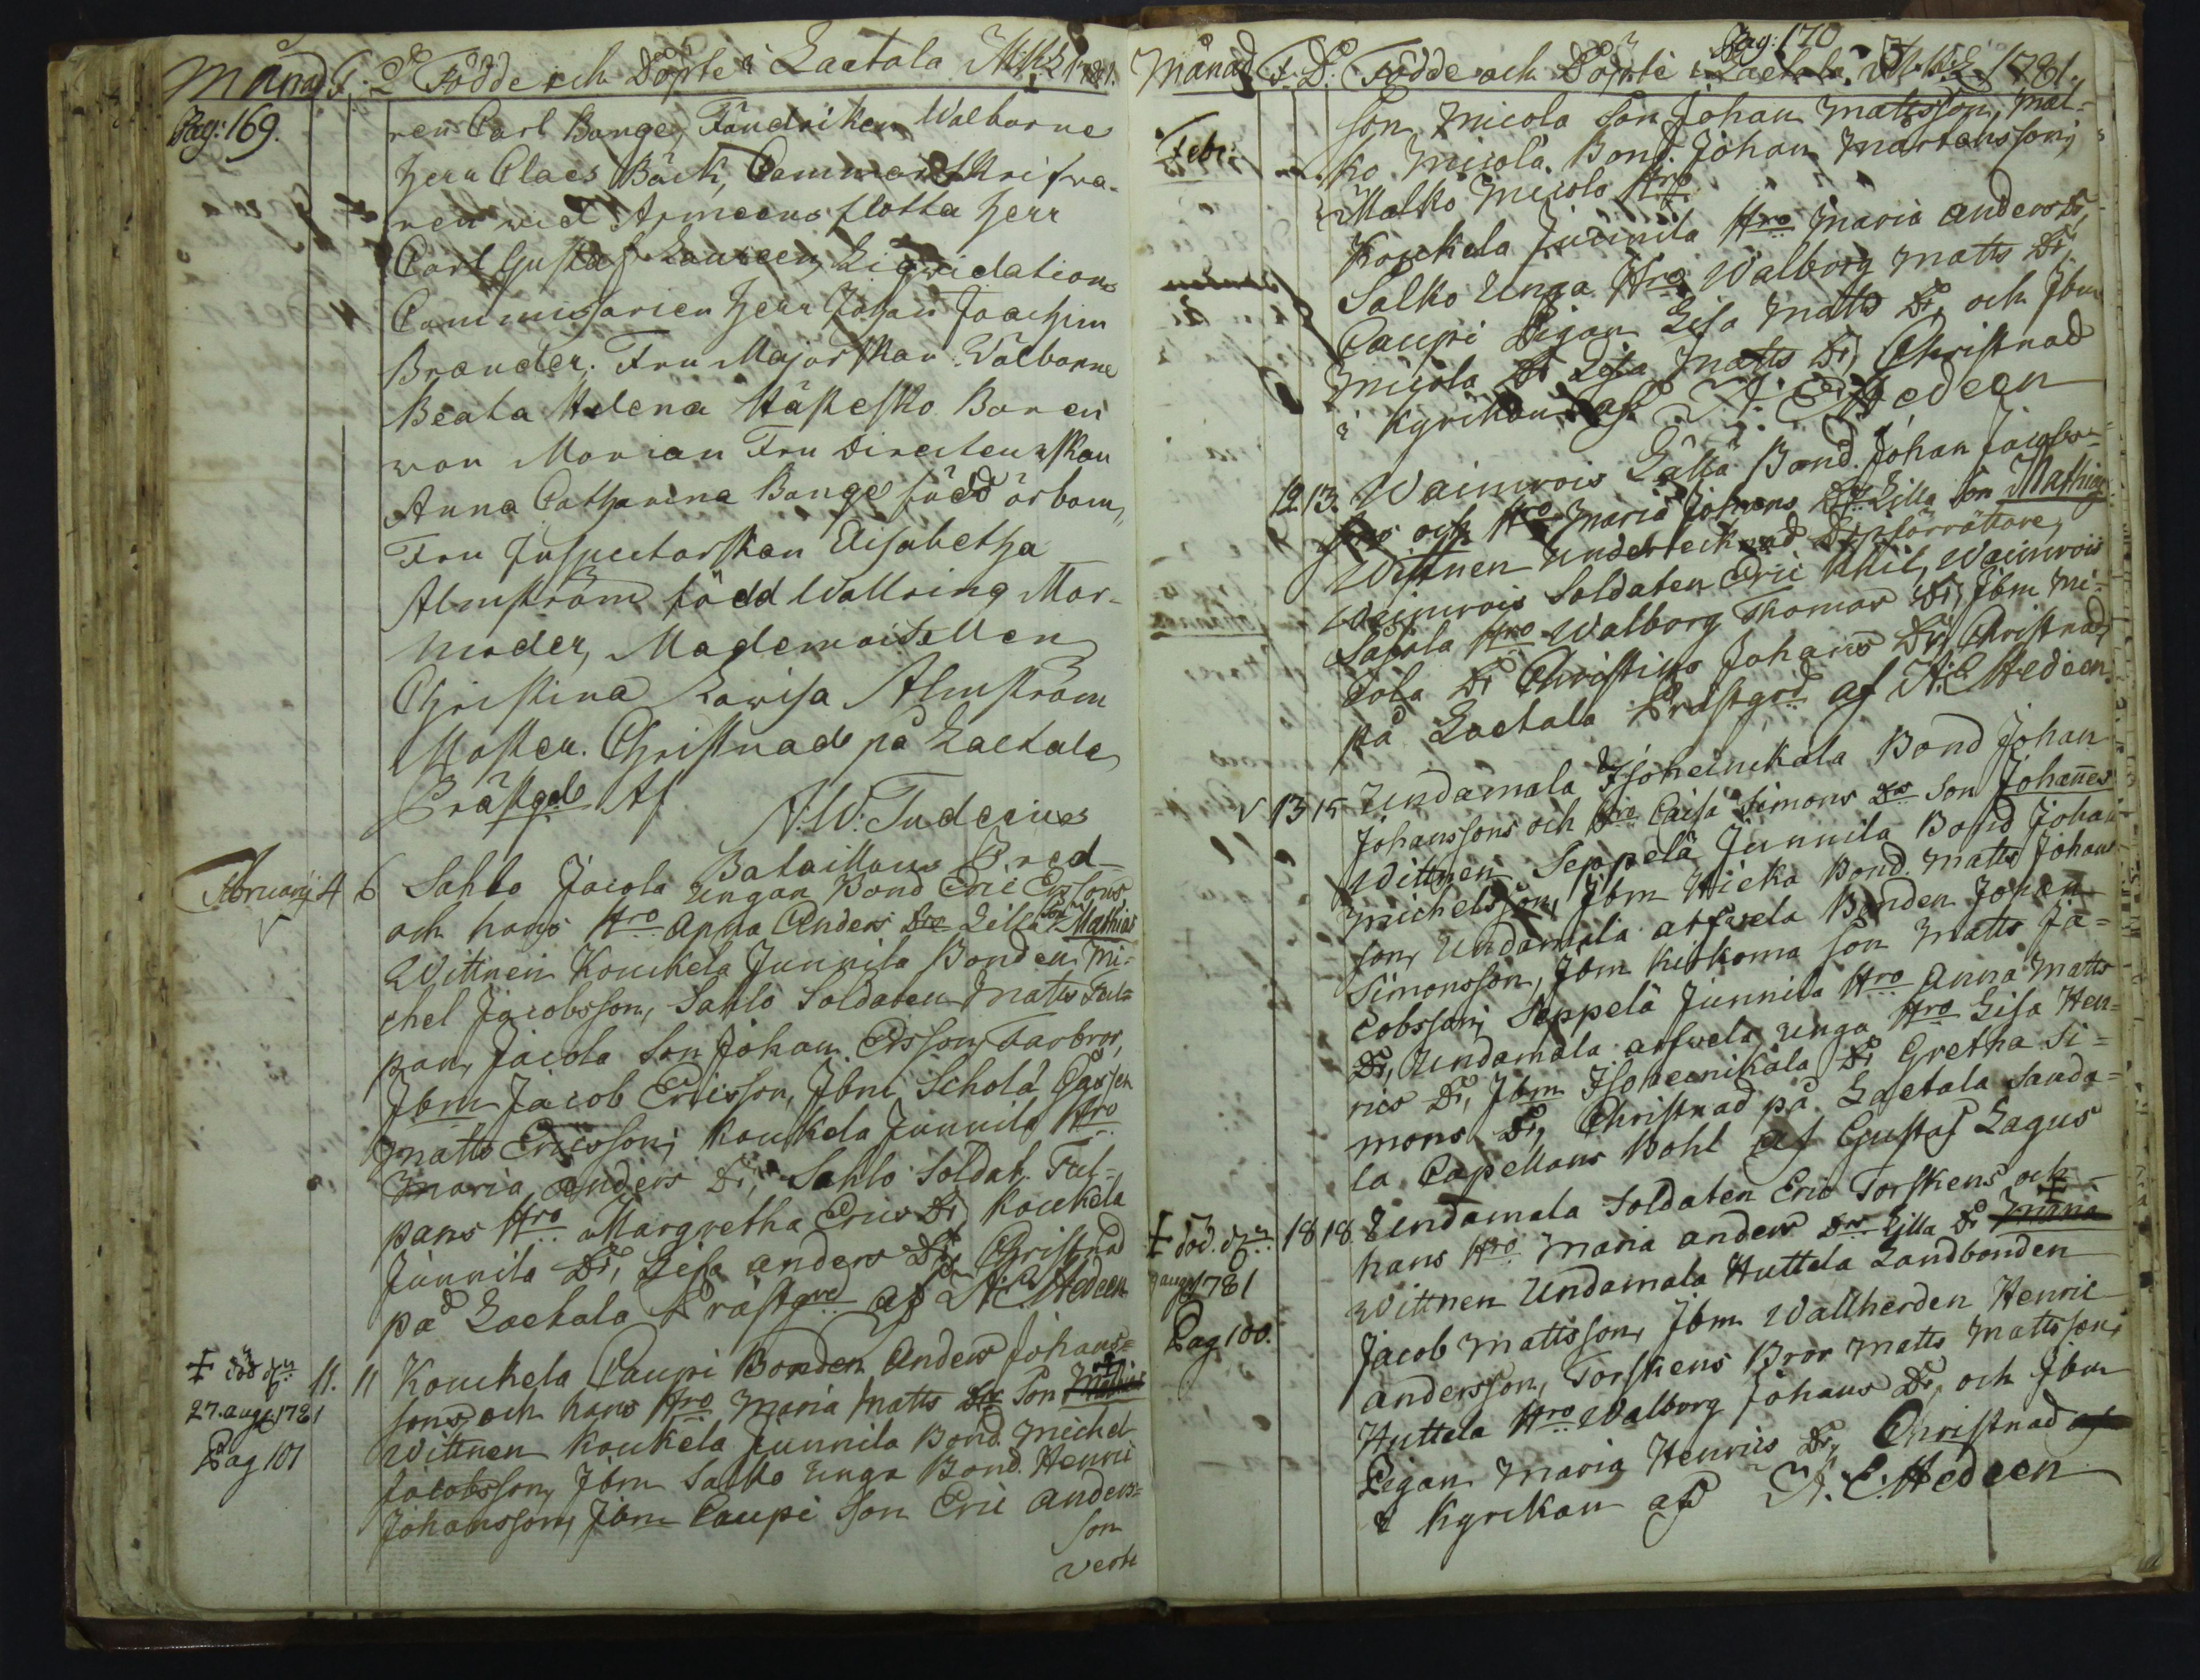 Månad F. D. Födde och Döpte i Laetala M:K:S 1781.
Pag: 169.
ren Carl Bange, Fändriken Walborne
Herr Claes Bäck, Cammar Skrifwa-
ren wid Armeens flotta Herr
Carl Gustaf Laureen, Liqvidations
Commisarien Herr Johan Joachim
Brander. Fru Majorskan Walborne
Beata Helena Häste sko Baren
war Morian Fru Directeurskan
Anna Catharina Bange född örbom,
Fru Inspectorskan Elisabetha
Almström född Wallring Mor-
moder, Mademoisellen
Christina Lowisa Almström
Moster. Christnad på Laetala
Prästgd Af
N: W: Tudeeius
Bataillons Pred-
Februarij 4 6 Sahlo Jacola ungan Bond Eric Ersons
och hans Hro Anna Anders Dr Lilla son Mathias
Wittnen Koukela Junnila Bonden Mi-
chel Jacobsson, Sahlo Soldaten Matts Ful-
pan, Jacola Son Johan Ersson Farbror,
Ibm Jacob Ericsson, Ibm Schola Gossen
Matts Ericsson; Koukela Junnila Hro
Maria Anders Dr, Sahlo Soldat. Ful-
pans Hro Margretha Erics Dr, Koukela
Junnila Dr, Lisa anders Dr, Christnad
på Laetala Prästgrd af N: C: Hedeen
+ död d:
27. aug. 1781
Pag 101
11. 11 Koukela Caupi Bonden Anders Johans-
sons och hans Hro Maria Matts Dr Son Mathias +
Wittnen Koukela Junnila Bond. Michel
Jacobsson, Ibm Salko unga Bond. Henric
Johansson, Ibm Caupi Son Eric Anders-
son
verte
Pag: 170
Månad. F. D. Födde och Döpte i Laetala M: K: S 1781.
Febr:
son, Micola Son Johan Mattsson, Mal-
ko Micola Bond. Johan Martensson;
Malko Micola Hro
Koukela Junnila Hro Maria anders Dr,
Salko Unga Hro Walborg Matts Dr,
Caupi Pigan Lisa Matts Dr, och Ibm
Micola Dr Lisa Matts Dr, Christnad
i Kyrkan af N: C: Hedeen
12 13. Wainwois Lälla Bond. Johan Jacobs-
sons och Hro Maria Johans Dr Lilla son Mathias
Wittnen Undertecknad Dop förrättare,
Wainwois Soldaten Eric Khil, Wainwois
Sapala Hro Walborg Thomas Dr, Ibm Mi-
cola Dr Christina Johans Dr, Christnad
på Laetala Prästgrd af N: C Hedeen
13 15 Undamala Isoheinickala Bond Johan
Johanssons och Hro Caisa Simons Dr Son Johanes
Wittnen Seppelä Junnila Bond Johan
Michelsson, Ibm Hieka Bond. Matts Johans
son, Undamala arfwela Bonden Johan
Simonsson, Ibm Kirkoma son Matts Ja-
cobsson; Seppelä Junnila Hro Anna Matts
Dr, Undamala arfwela unga Hro Lisa Hen-
rics Dr, Ibm Isoheinikala Dr Gretha Si-
mons Dr, Christnad på Laetala Sanda-
la Capellans Bohl af Gustaf Lagus
+ död. d:
9 aug 1781
Pag 100.
18 18. Undamala Soldaten Eric Torskens och
hans Hro Maria anders Dr Lilla Dr Maria +
Wittnen Undamala Huttala Landbonden
Jacob Mattsson, Ibm Wallherden Henric
Andersson, Torskens Bror Matts Mattsson,
Huttela Hro Walborg Johans Dr, och Ibm
Pigan Maria Henrics Dr, Christnad af
i Kyrkan af N. C. Hedeen